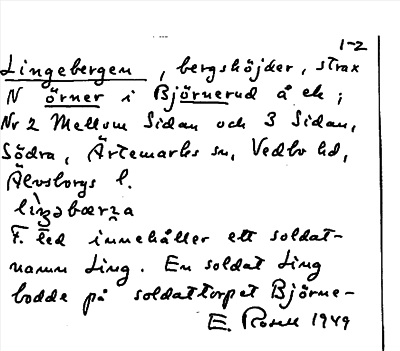 1-2
Lingebergen, bergshöjder, strax
N örner i Björnerud å ek;
Nr 2 Mellom Sidan och 3 Sidan,
Södra, Ärtemarks sn, Vedbo hd,
Älvsborgs l.
lìŋəbærɳa
F. led innehåller ett soldat-
namn Ling. En soldat Ling
bodde på soldattorpet Björne-
E. Rosell 1949